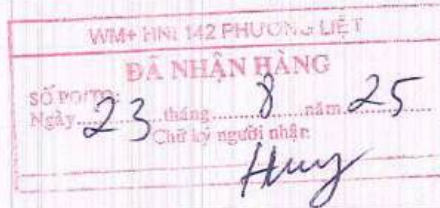 WM+ HNI 142 PHƯƠNG LIỆT
ĐÃ NHẬN HÀNG
SỐ PO/TO:
Ngày 23 tháng 8 năm 25
Chữ ký người nhận
Huy